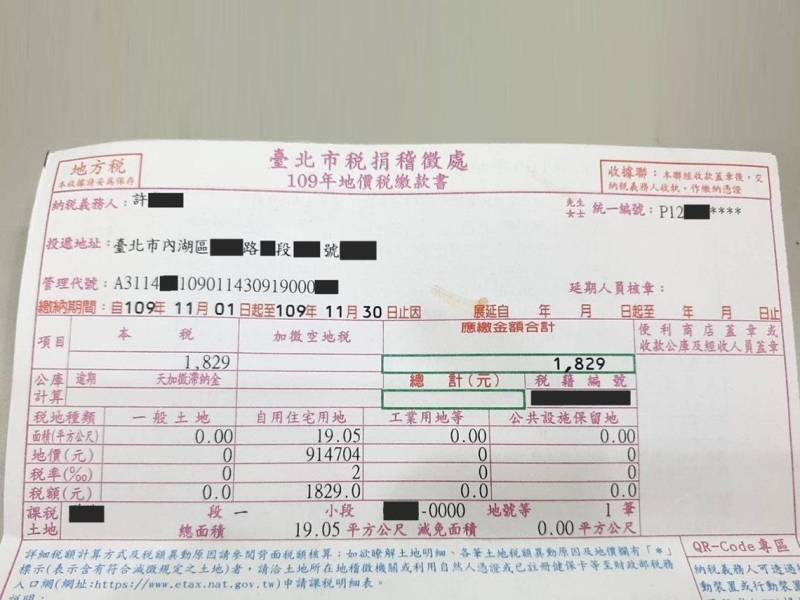 地方稅
本收據請妥為保存
臺北市稅捐稽徵處
109年地價稅繳款書
收據聯：本聯經收款蓋章後，交
納稅義務人收執，作繳納憑證
納稅義務人：許
先生
女士
統一編號：P12 ****
投遞地址：臺北市內湖區 路 段 號
管理代號：A3114 109011430919000
延期人員核章：
繳納期間：自109年 11月 01日起至109年 11月 30日止因 展延自 年 月 日起至 年 月 日止
項目 本 稅 加徵空地稅 應繳金額合計 便利商店蓋章或
收款公庫及經收人員蓋章
1,829 1,829
公庫
計算
逾期 天加徵滯納金 總 計(元) 稅籍編號
稅地種類 一般土地 自用住宅用地 工業用地等 公共設施保留地
面積(平方公尺) 0.00 19.05 0.00 0.00
地價(元) 0 914704 0 0
稅率(‰) 0 2 0 0
稅額(元) 0.0 1829.0 0.0 0.0
課稅 段 一 小段 -0000 地號等 1 筆
土地 總面積 19.05 平方公尺 減免面積 0.00 平方公尺
詳細稅額計算方式及稅額異動原因請參閱背面稅額核算；如欲瞭解土地明細、各筆土地稅額異動原因及地價欄有「*」
標示(表示含有符合減徵規定之土地)者，請洽土地所在地稽徵機關或利用自然人憑證或已註冊健保卡等至財政部稅務
入口網(網址:https://www.etax.nat.gov.tw)申請課稅明細表。
說明：
QR-Code專區
納稅義務人可透過
動裝置或行動裝置